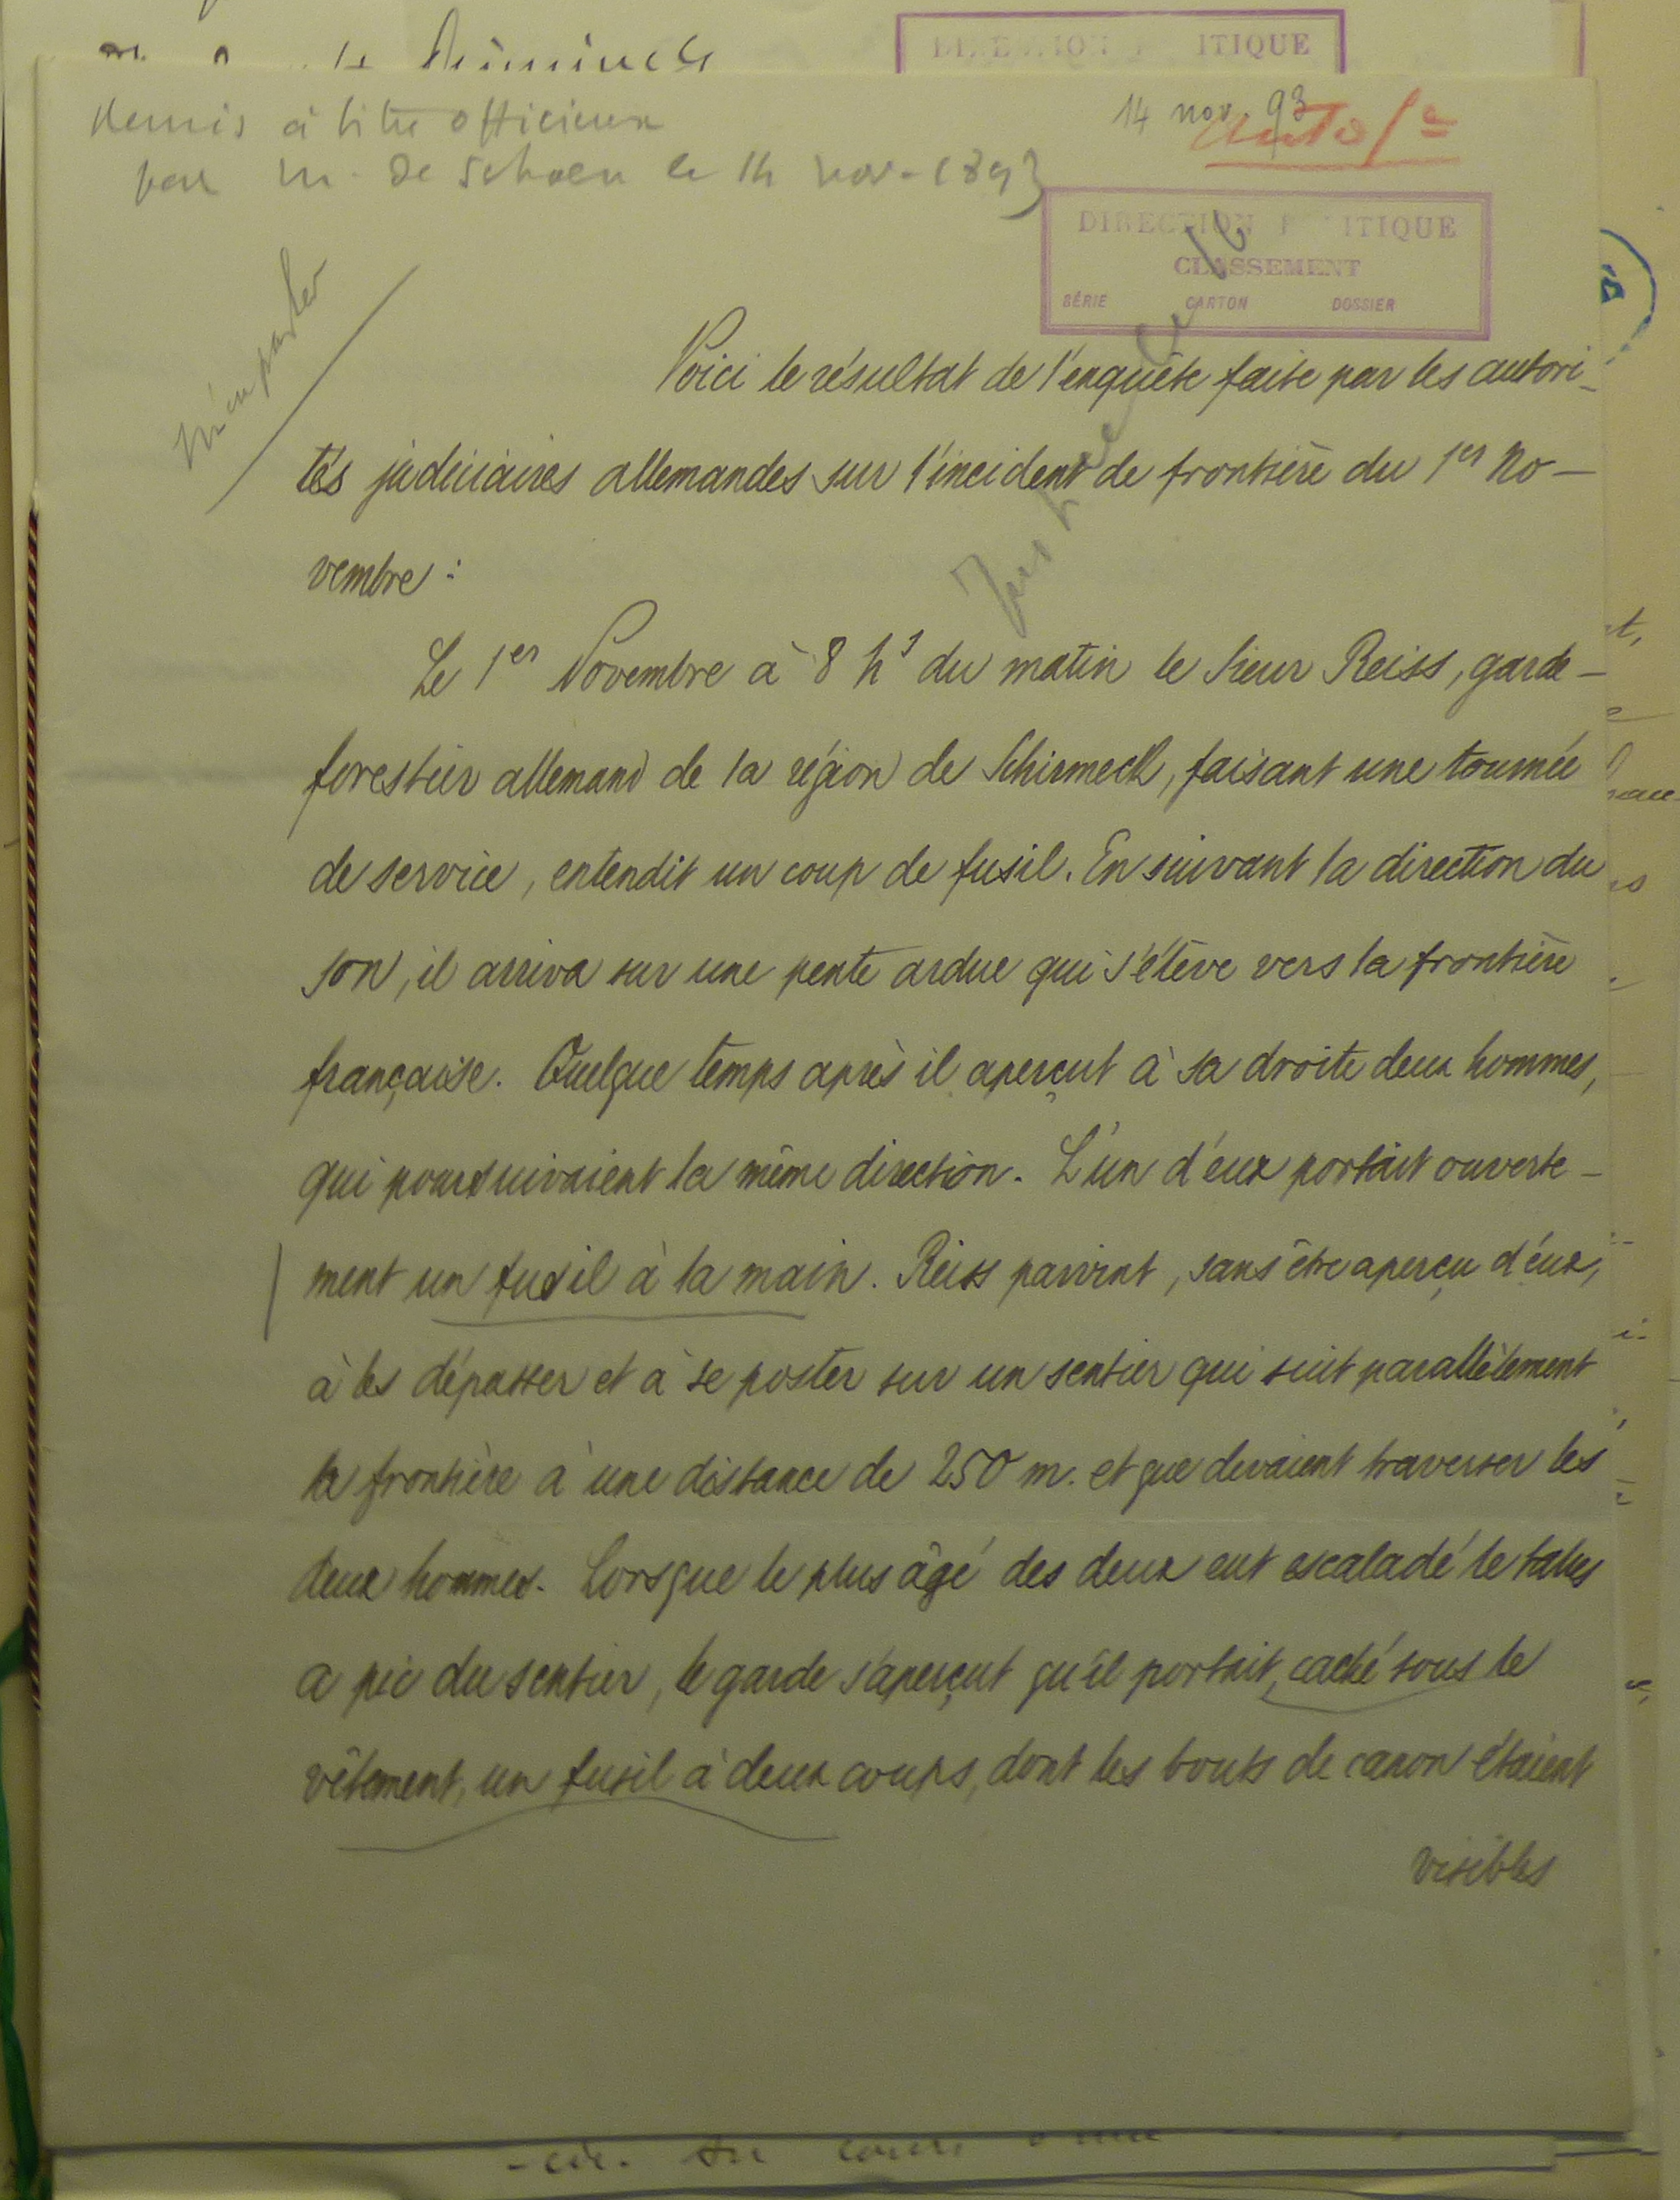 DIRECTION ITIQUE
Remis à titre officieux
par M. de Schoen le 14 nov. 1893
14 nov. 93
DIRECTION POLITIQUE
CLASSEMENT
SÉRIE CARTON DOSSIER
M'en parler
Voici le résultat de l'enquête faite par les autori-
tés judiciaires allemandes sur l'incident de frontière du 1er No-
vembre :
Le 1er Novembre à 8 hs du matin le Sieur Reiss, garde-
forestier allemand de la région de Schirmeck, faisant une tournée
de service, entendit un coup de fusil. En suivant la direction du
son, il arriva sur une pente ardue qui s'élève vers la frontière
française. Quelque temps après il aperçut à sa droite deux hommes,
qui poursuivaient la même direction. L'un d'eux portait ouverte-
ment un fusil à la main. Reiss parvint, sans être aperçu d'eux,
à les dépasser et à se poster sur un sentier qui suit parallèlement
la frontière à une distance de 250 m. et que devaient traverser les
deux hommes. Lorsque le plus âgé des deux eut escaladé le talus
a pic du sentier, le garde s'aperçut qu'il portait, caché sous le
vêtement, un fusil à deux coups, dont les bouts de canon étaient
visibles